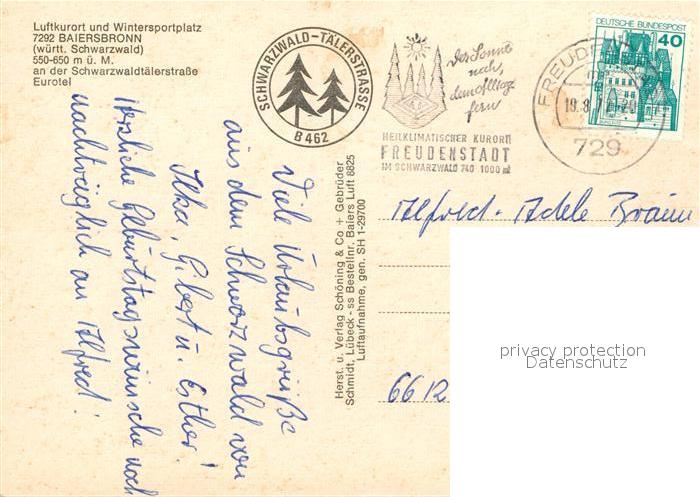 Luftkurort und Wintersportplatz
7292 BAIERSBRONN
(württ. Schwarzwald)
550-650 m ü. M.
an der Schwarzwaldtälerstraße
Eurotel
SCHWARZWALD-TÄLERSTRASSE
B 462
Der Sonne
noch,
dem Alltag
fern
HEILKLIMATISCHER KURORT
FREUDENSTADT
IM SCHWARZWALD 740 1000 m
FREUDEN
19.8.
729
DEUTSCHE BUNDESPOST
40
Viele Urlaubsgrüße
aus dem Schwarzwald von
Ilka, Gilbert u. Esther!
Herzliche Geburtstagswünsche noch
nachträglich an Alfred!
Herst. u. Verlag Schöning & Co + Gebrüder
Schmidt, Lübeck - ss Bestellnr. Baiers Luft 8825
Luftaufnahme, gen. SH 1-29700
Alfred - Adele Braun
6612
privacy protection
Datenschutz